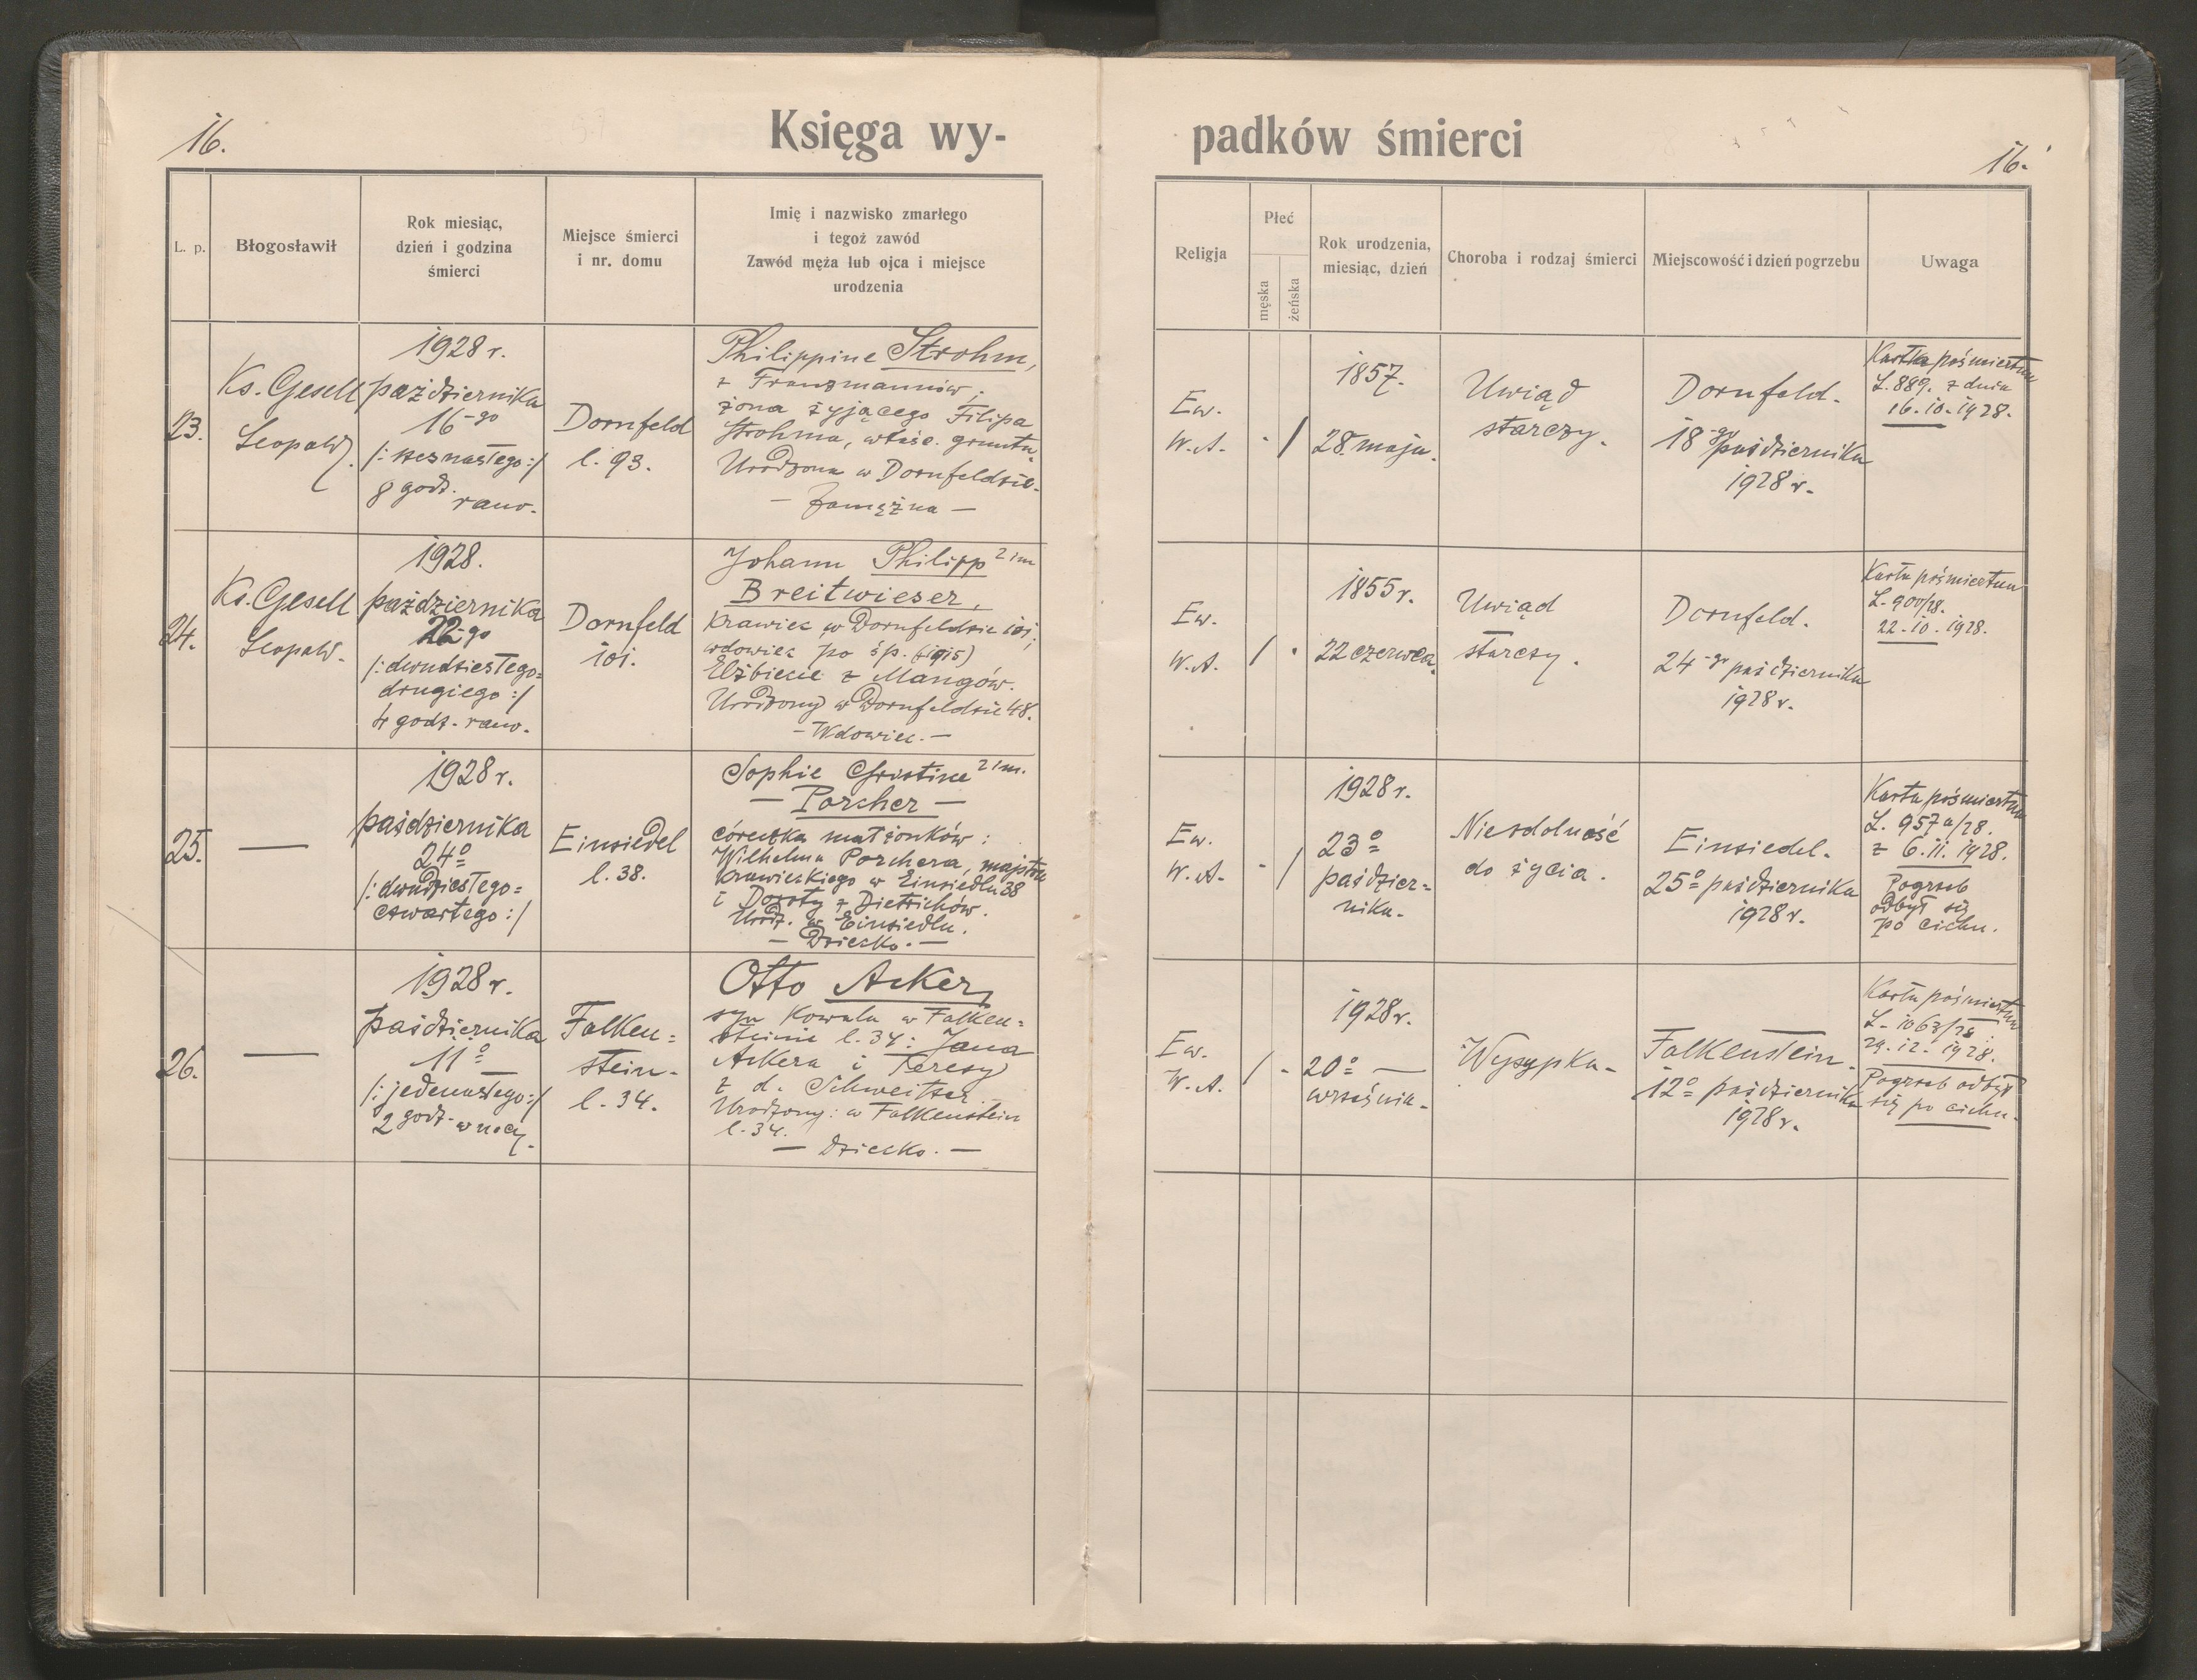 16.
Księga wy-
padków śmierci
16.
L. p.
Błogosławił
Rok miesiąc,
dzień i godzina
śmierci
Miejsce śmierci
i nr. domu
Imię i nazwisko zmarłego
i tegoż zawód
Zawód męża lub ojca i miejsce
urodzenia
Religja
Płeć
męska
żeńska
Rok urodzenia,
miesiąc, dzień
Choroba i rodzaj śmierci
Miejscowość i dzień pogrzebu
Uwaga
23.
Ks. Gesell
Leopold.
1928 r.
października
16-go
/: szesnastego :/
8 godz.
rano.
Dornfeld
l. 93.
Philippine Strohm,
z Franzmannów,
żona żyjącego Filipa
Strohma, właśc. gruntu.
Urodzona w Dornfeldzie.
— Zamężna —
Ew.
W.A.
- /
1857.
28. maja.
Uwiąd
starczy.
Dornfeld.
18-go października
1928 r.
Kartka pośmiertna
L. 889. z dnia
16.10.1928.
24.
Ks. Gesell
Leopold.
1928.
października
22-go
/: dwudziestego=
drugiego :/
4 godz. rano.
Dornfeld
101.
Johann Philipp 2 im
Breitwieser,
Krawiec w Dornfeldzie 101,
wdowiec po śp. (1915)
Elżbiecie z Mangów.
Urodzony w Dornfeldzie 48.
— Wdowiec. —
Ew.
W.A.
/ .
1855 r.
22 czerwca.
Uwiąd
starczy.
Dornfeld.
24-go października
1928 r.
Karta pośmiertna
L. 900/28.
22.10.1928.
25.
—
1928 r.
października
24º
/: dwudziestego=
czwartego :/
Einsiedel
l. 38.
Sophie Christine 2 im.
— Porcher —
córeczka małżonków:
Wilhelma Porchera, majstra
krawieckiego w Einsiedlu 38
i Doroty z Dietrichów.
Urodz. w Einsiedlu.
— Dziecko. —
Ew.
W.A.
- /
1928 r.
23º
paździer=
nika.
Niezdolność
do życia.
Einsiedel.
25º października
1928 r.
Karta pośmiertna
L. 957a/28.
z 6.11.1928.
Pogrzeb
odbył się
po cichu.
26.
—
1928 r.
października
11º
/: jedenastego :/
2 godz. w nocy.
Falken=
stein.
l. 34.
Otto Acker,
syn kowala w Falken=
steinie l. 34: Jana
Ackera i Teresy
z d. Schweitzer.
Urodzony: w Falkenstein
l. 34.
— Dziecko. —
Ew.
W.A.
/ -
1928 r.
20º —
września.
Wysypka.
Falkenstein.
12º października
1928 r.
Karta pośmiertna
L. 1063/28.
29.12.1928.
Pogrzeb odbył
się po cichu.